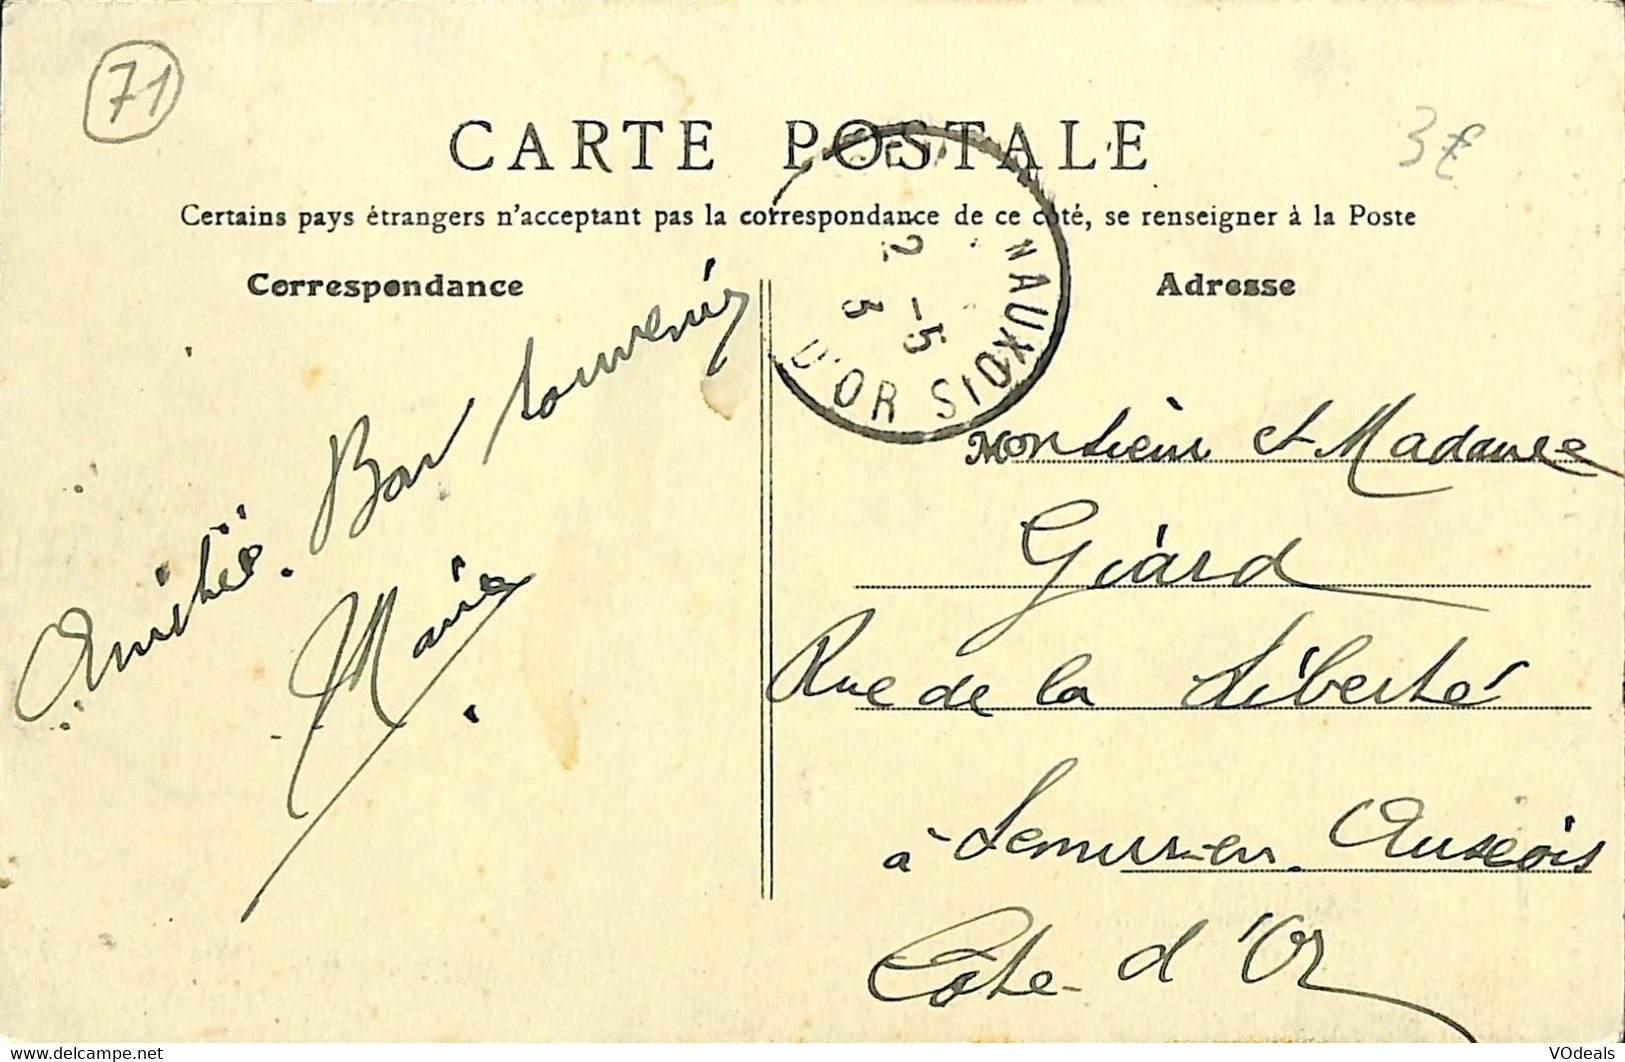 71
3€
CARTE POSTALE
Certains pays étrangers n'acceptant pas la correspondance de ce côté, se renseigner à la Poste
Correspondance
Adresse
2 -5
3
NAUXOIS
D'OR
Amitiés. Bon souvenir
Marie
Monsieur et Madame
Giard
Rue de la Liberté
à Semur-en-Auxois
Côte-d'Or
© VOdeals